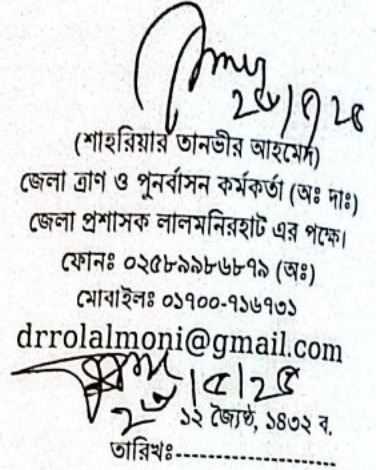 (শাহরিয়ার তানভীর আহমেদ)
জেলা ত্রাণ ও পুনর্বাসন কর্মকর্তা (অঃ দাঃ)
জেলা প্রশাসক লালমনিরহাট এর পক্ষে।
ফোনঃ ০২৫৮৯৯৮৬৮৭৯ (অঃ)
মোবাইলঃ ০১৭০০-৭১৬৭৩১
drrolalmoni@gmail.com
১২ জ্যৈষ্ঠ, ১৪৩২ ব.
তারিখঃ--------------------